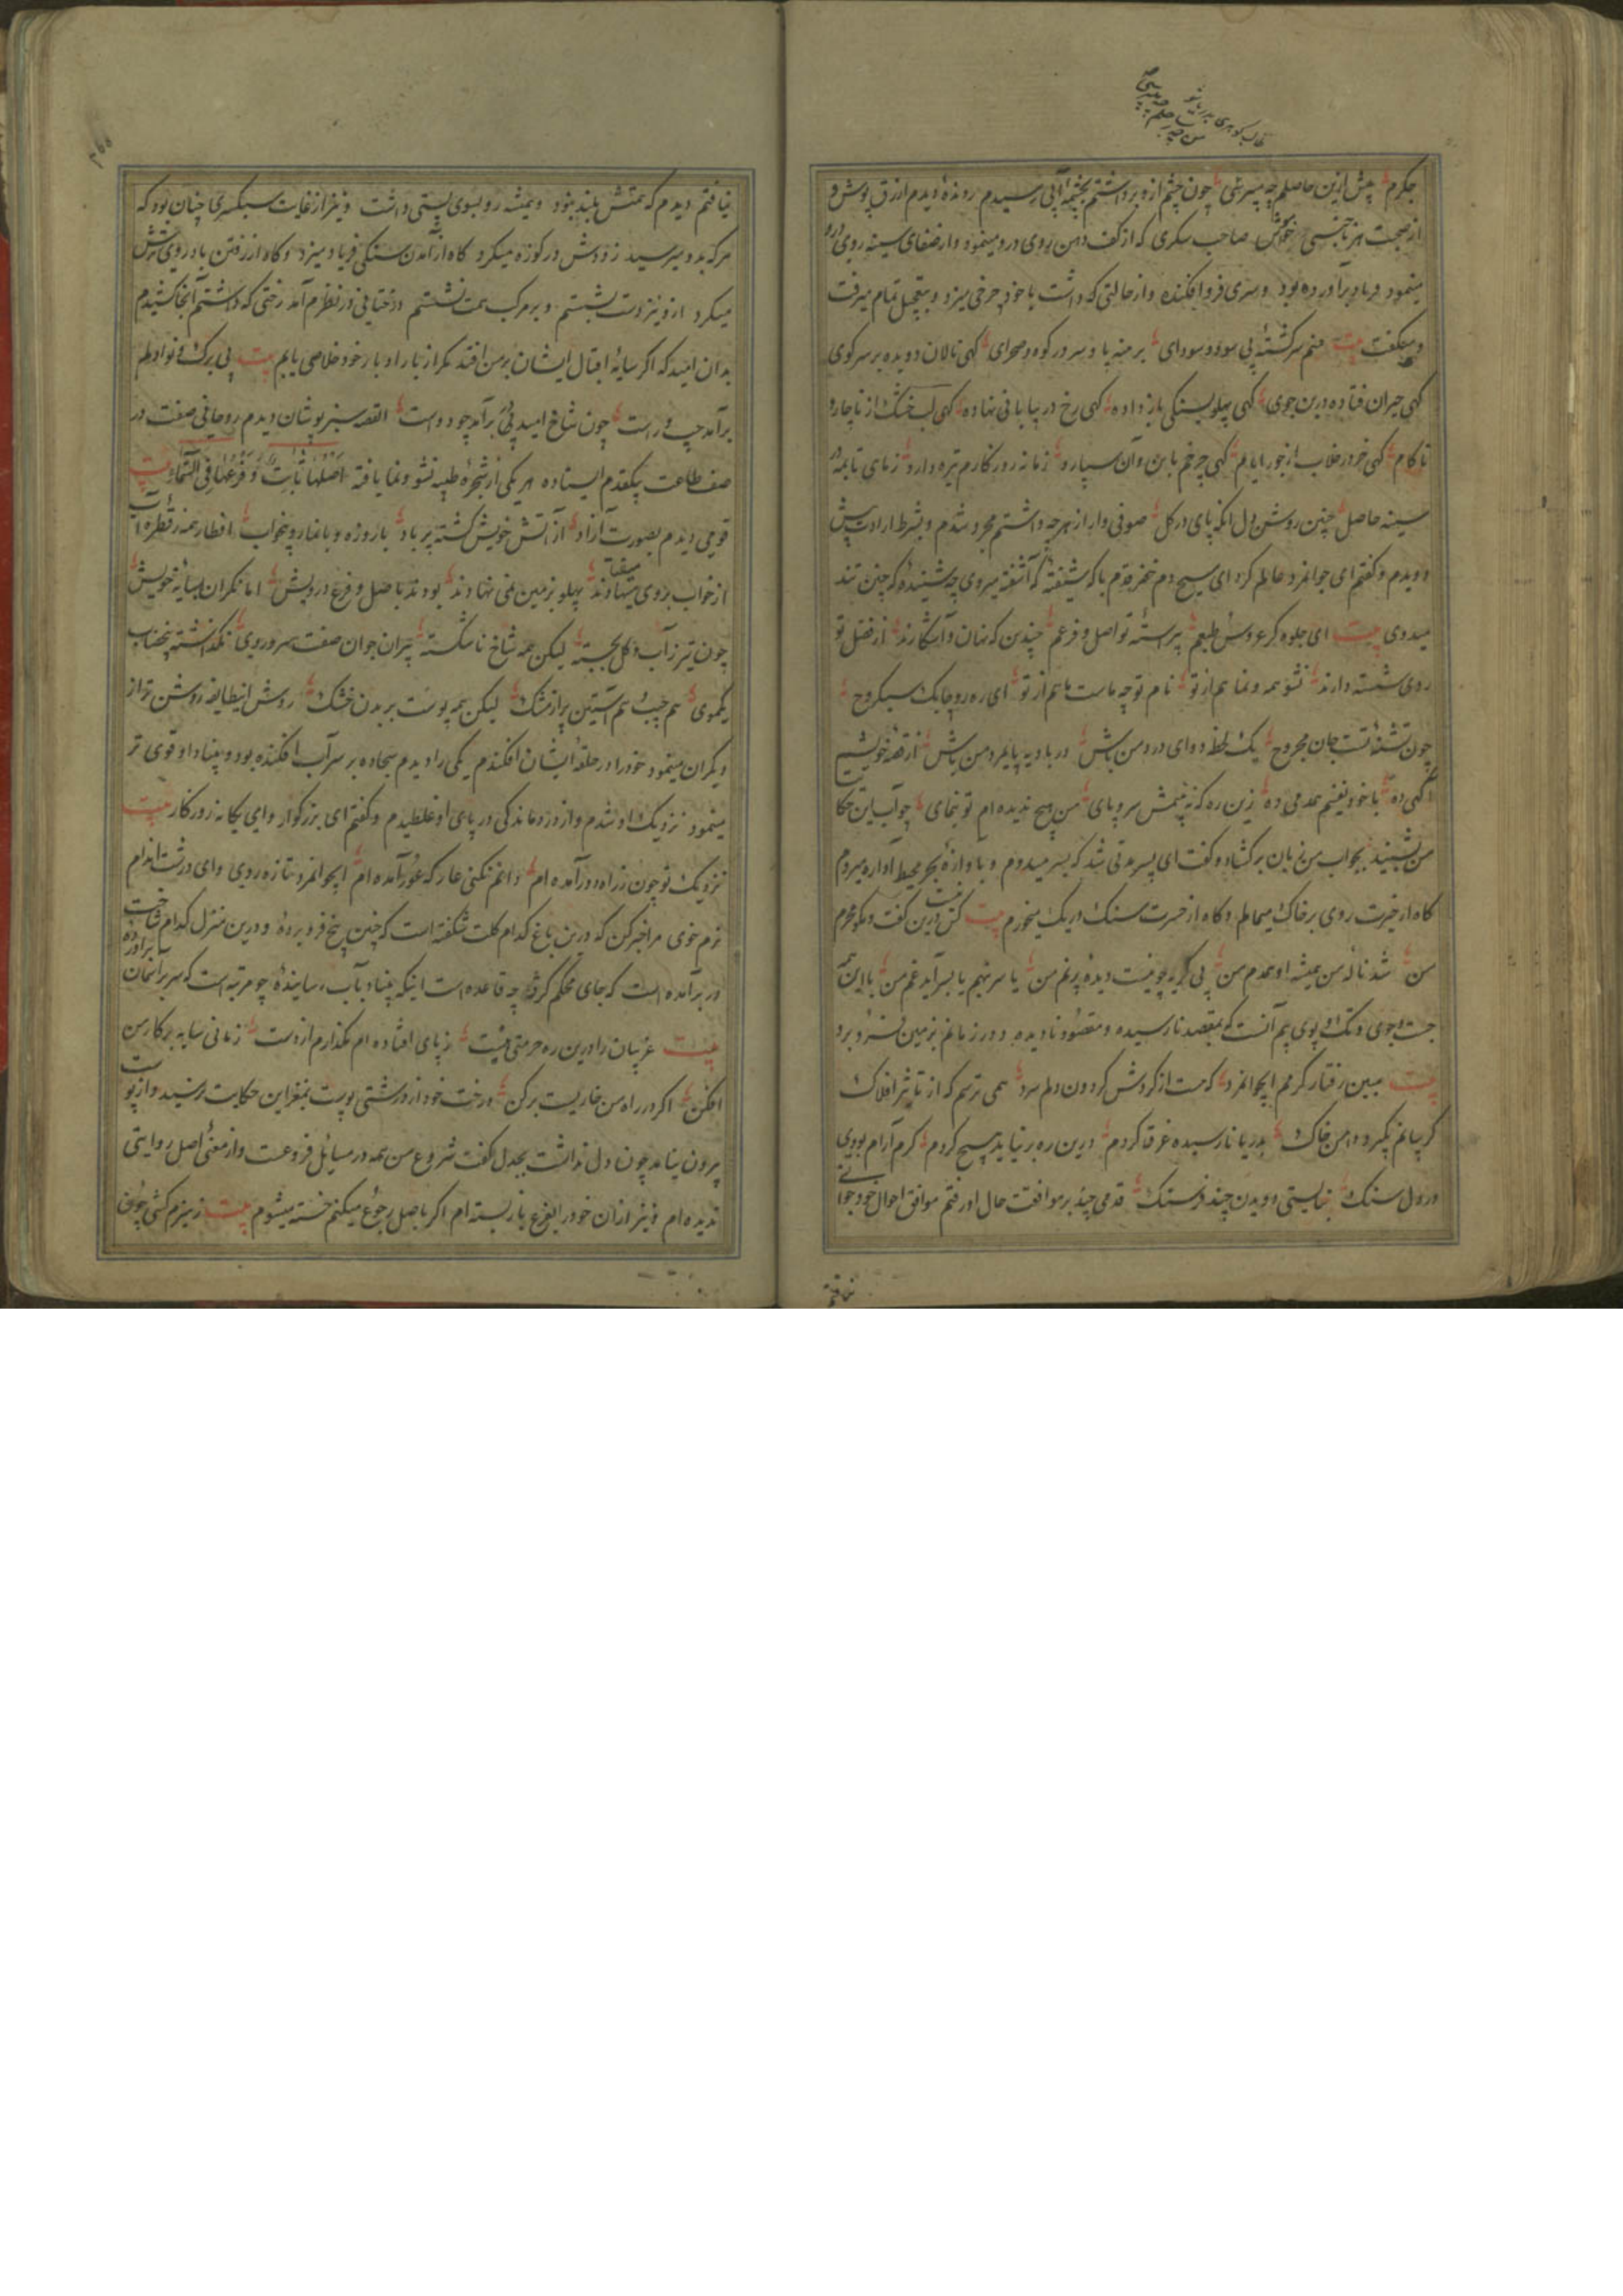 جکرم پیش ازین حاصلم چه میپرسی چون چشم ازو برداشتم بچشمهٔ آبی رسیدم روندهٔ دیدم ازرق پوش و
از صحبت هر ناجنسی صاحب سکری که از کف دهن روی درو مینمود و از صفای سینه روی درو
مینمود فریاد برآورده بود و سری فروافکنده و از حالتی که داشت با خود چرخی میزد و بتعجیل تمام میرفت
و میگفت بیت منم سرگشته بی سود و سودای برهنه پا و سر در کوه و صحرای کهی نالان دویده بر سر کوی
کهی حیران فتاده در بن جوی کهی پهلو بسنکی باز داده کهی رخ در بیابانی نهاده کهی لب خشک از ناچار و
ناکام کهی خر در خلاب از جور ایام کهی چرخم باین و آن سپارد زمانه روزکارم تیره دارد ز مای تا بمه در
سینه حاصل چنین روشن دل انکه پای در کل صوفی وار از هرچه داشتم مجرد شدم و بشرط ارادت پیش
دویدم و کفتم ای جوانمرد عالم کرد ای مسیح دم خضر قدم با که شیفتهٔ که آشفته میروی چه شنیدهٔ که چنین تند
میدوی بیت ای جلوه کر عروس طبعم پیراستهٔ تو اصل و فرعم چندین که نهان و آشکارند از فضل تو
روی شسته دارند نشو همه و نما هم از تو نام تو چه ماست ما هم از تو ای ره رو چابک سبکروح
چون تشنهٔ تست جان مجروح یک لحظه دوای درد من باش در بادیه پایمرد من باش از قصهٔ خویشم
آکهی ده با خود نفسم همدمی ده زین ره که نه بینمش سر و پای من هیچ ندیده ام تو بنمای چو آب این حکایت
من بشنید بجواب من زبان برکشاد و کفت ای پسر مدتی شد که بسر میدوم و بآوازهٔ بحر محیط آواره میروم
کاه از حیرت روی بر خاک میمالم و کاه از حسرت سنک و ریک میخورم بیت کس درین کفت و مکو محرم
من شد نالهٔ من همیشه او همدم من بی کریه چو نیست دیدهٔ پر نم من یا سر بنهم یا بسر آید غم من با این همه
جست و جوی و تک و پوی بیم آنست که بمقصد نارسیده و مقصود نادیده دور زمانم بزمین فرو برد
بیت ببین رفتار کرمم ایجوانمرد که هست از کردش کردون دلم سرد همی ترسم که از تاثیر افلاک
کریبانم بگیرد دامن خاک بدریا نارسیده غرقا کردم درین ره بر نیاید هیچ کردم کرم آرام بودی
در دل سنک نبایستی دویدن چند فرسنک قدمی چند بر موافقت حال او رفتم موافق احوال خود جوانی
نیافتم
نیافتم دیدم که همتش بلند نبود و همیشه رو بسوی پستی داشت و نیز از غایت سبکسری چنان بود که
هر که بدو میرسید زودش در کوزه میکرد کاه از آمدن سنکی فریاد میزد و کاه از رفتن باد روی ترش
میکرد ازو نیز دست بشستم و بر مرکب همت نشستم درختانی در نظرم آمد رختی که داشتم آنجا کشیدم
بدان امید که اکر سایهٔ اقبال ایشان بر من افتد مکر از بار ادبار خود خلاصی یابم بیت بی برک و نوا دلم
برآمد چپ و راست چون شاخ امید پی برآمد چو دواست القصه سبز پوشان دیدم روحانی صفت در
صف طاعت بیکقدم ایستاده هر یکی از شجرهٔ طیبه نشو و نما یافته اَصْلُهَا ثَابِتٌ وَ فَرْعُهَا فِی السَّمَاءِ بیت
قومی دیدم بصورت آزاد از آتش خویش کشته پر باد با روزه و با نماز و بیخواب افطار همه ز قطرهٔ آب
از خواب بروی میفتادند پهلو بزمین نمی نهادند بودند باصل و فرع درویش اما نکران بسایهٔ خویش
چون تیر ز آب و کل بجسته لیکن همه شاخ ناشکسته پیران جوان صفت بهر روی نکذاشته بیخضاب
یکموی هم جیب و هم آستین پر از مشک لیکن همه پوست بر بدن خشک روش اینطایفه روشن تر از
دیکران مینمود خود را در حلقهٔ ایشان افکندم یکی را دیدم سجاده بر سر آب افکنده بود و بنیاد او قوی تر
مینمود نزدیک او شدم و از درماندکی در پای او غلطیدم و کفتم ای بزرکوار و ای یکانه روزکار بیت
نزدیک تو چون ز راه دور آمده ام دانم نکنی عار که عور آمده ام ایجوانمرد تازه روی و ای درشت اندام
نرم خوی مرا خبر کن که درین باغ کدام کلت شکفته است که چنین بیخ فرو بردهٔ و درین منزل کدام شاخت
در برآمده است که جای محکم کرفتهٔ چه قاعده است اینکه بنیاد بآب رسانیدهٔ چو مرتبه است که سر بر آسمان برآوردهٔ
بیت غریبان را درین ره حرمتی هست ز پای افتاده ام مکذارم از دست زمانی سایه بر کار من
افکن اکر در راه من خاریست برکن درخت خود از درشتی پوست بمغز این حکایت نرسید و از پوست
بیرون نیامد چون دل نداشت بجدل کفت شروع من همه در مسائل فروعست و از معنی اصل روایتی
ندیده ام و نیز ازان خود را بفرع باز بسته ام اکر باصل رجوع میکنم خسته میشوم بیت